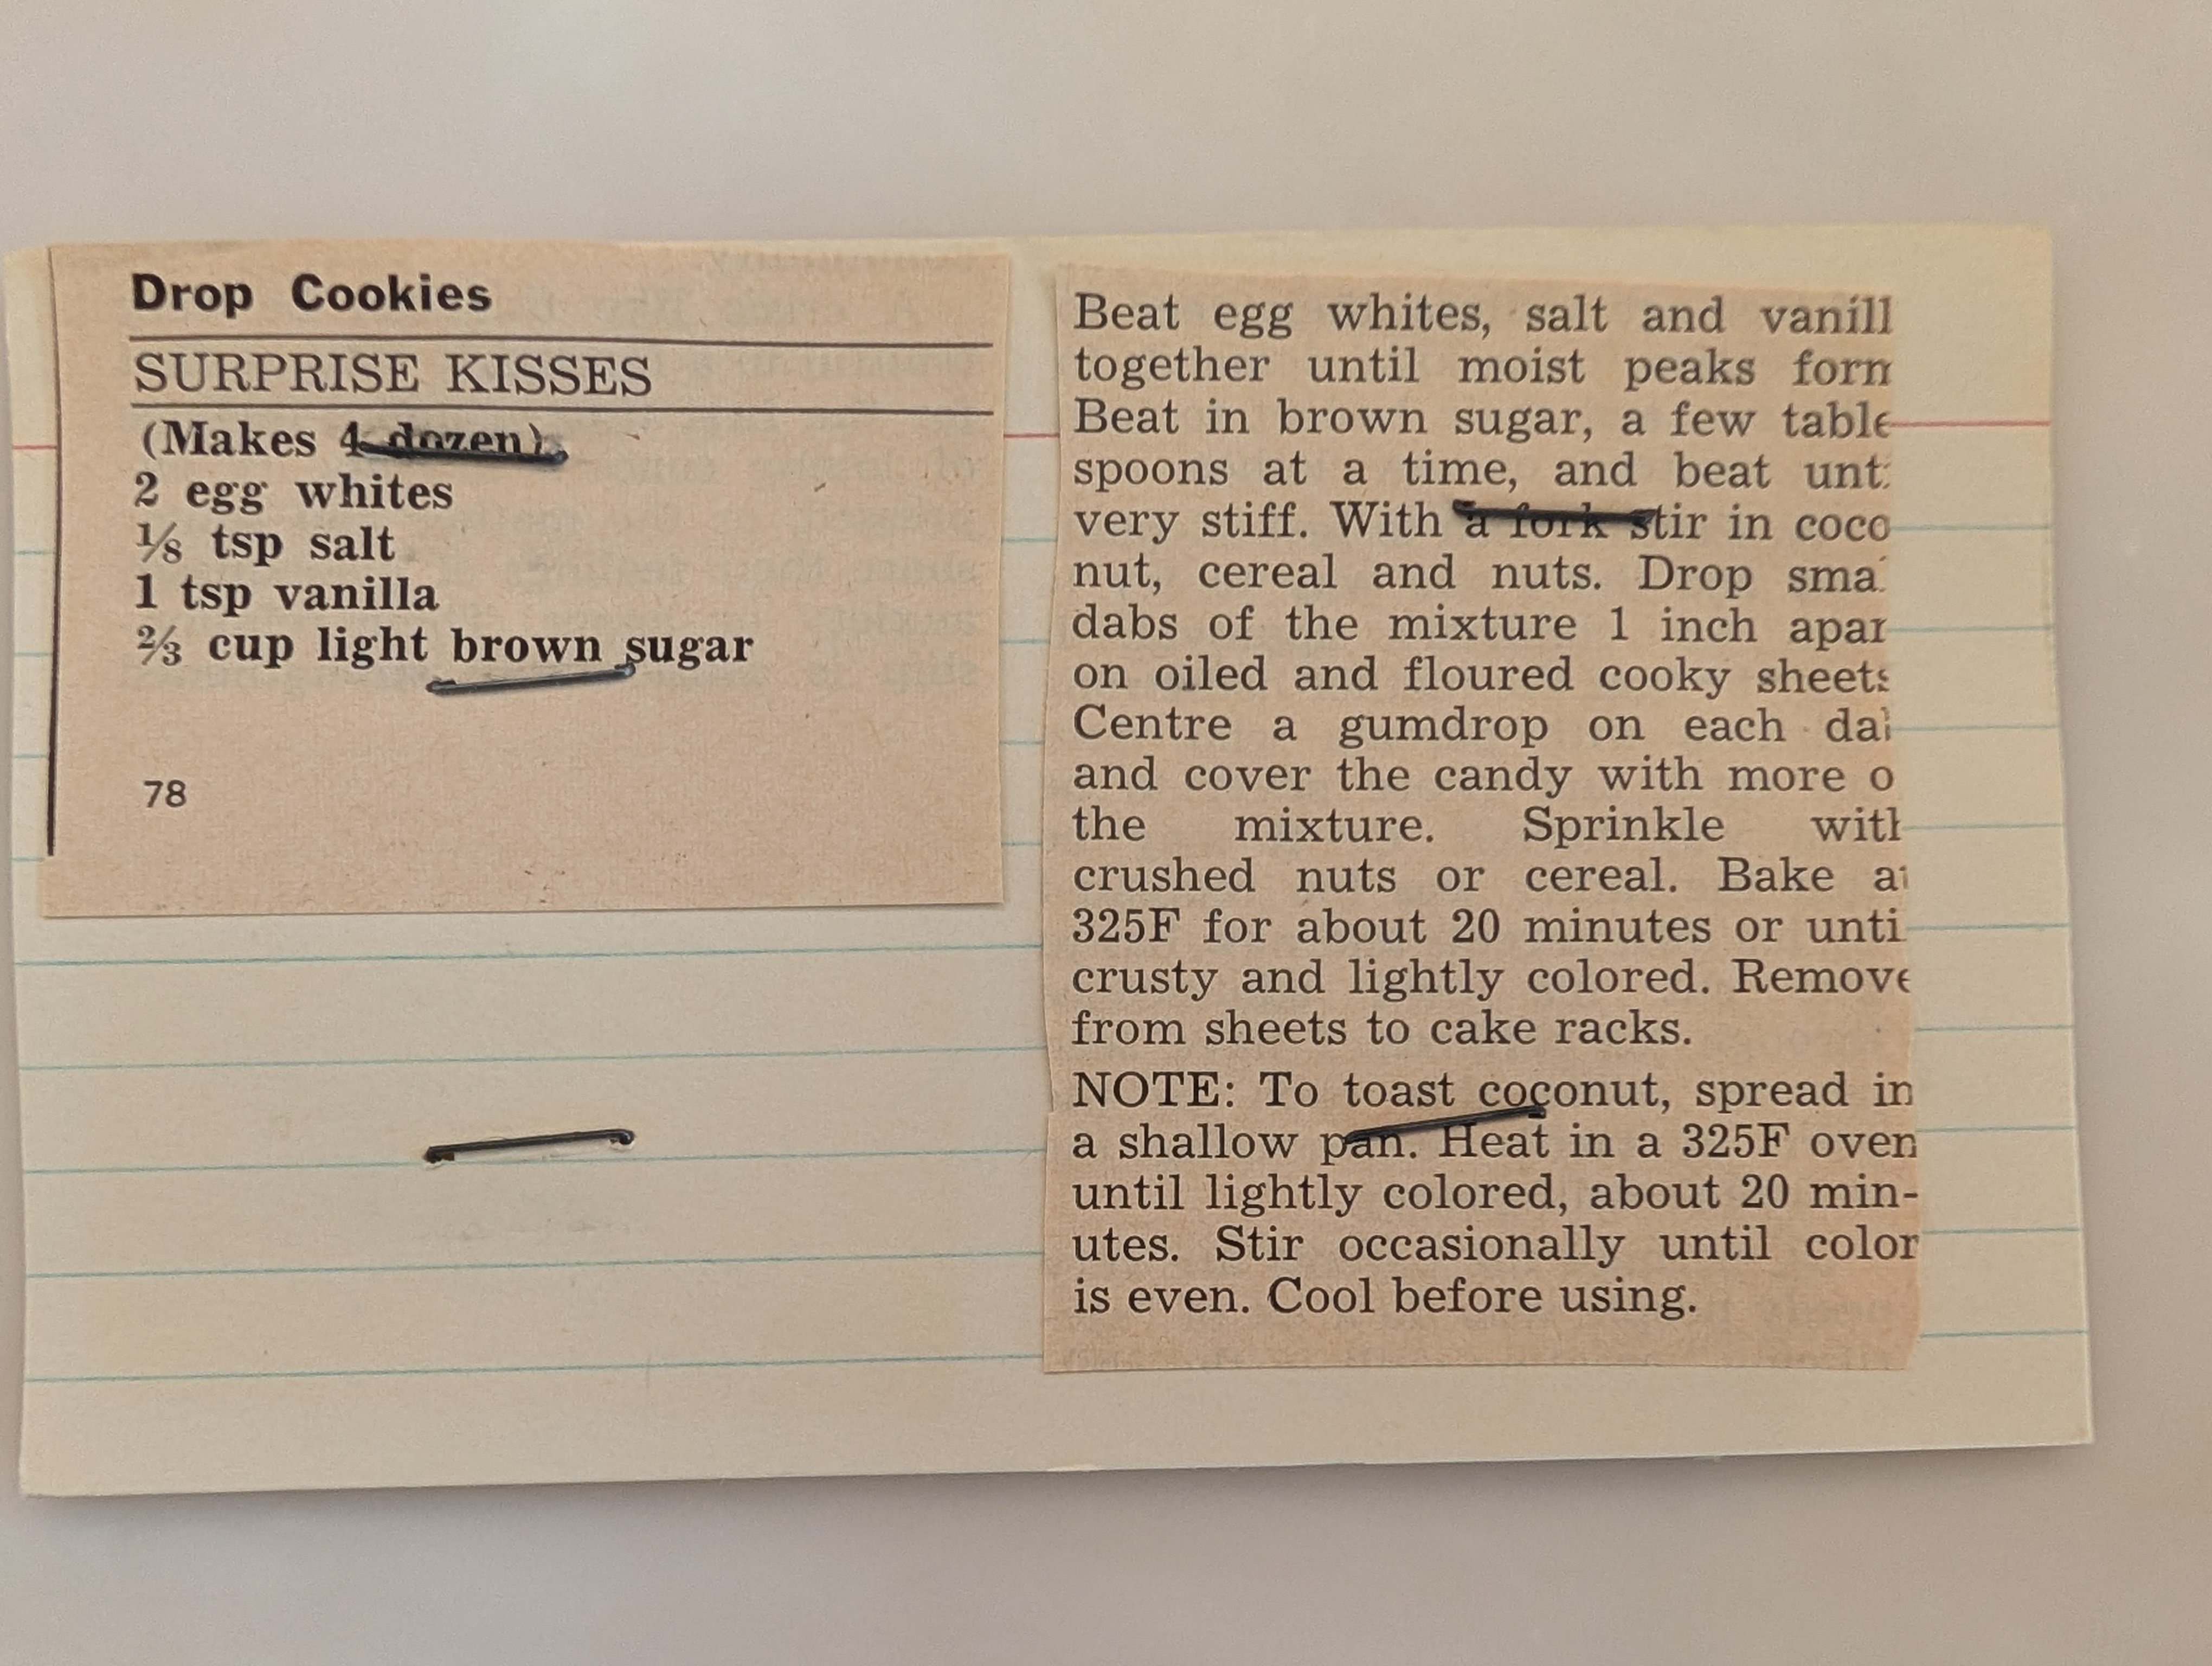 Drop Cookies
SURPRISE KISSES
(Makes 4 dozen)
2 egg whites
⅛ tsp salt
1 tsp vanilla
⅔ cup light brown sugar
78
Beat egg whites, salt and vanill
together until moist peaks form
Beat in brown sugar, a few table
spoons at a time, and beat unti
very stiff. With a fork stir in coco
nut, cereal and nuts. Drop smal
dabs of the mixture 1 inch apar
on oiled and floured cooky sheets
Centre a gumdrop on each dab
and cover the candy with more o
the mixture. Sprinkle with
crushed nuts or cereal. Bake at
325F for about 20 minutes or unti
crusty and lightly colored. Remove
from sheets to cake racks.
NOTE: To toast coconut, spread in
a shallow pan. Heat in a 325F oven
until lightly colored, about 20 min-
utes. Stir occasionally until color
is even. Cool before using.